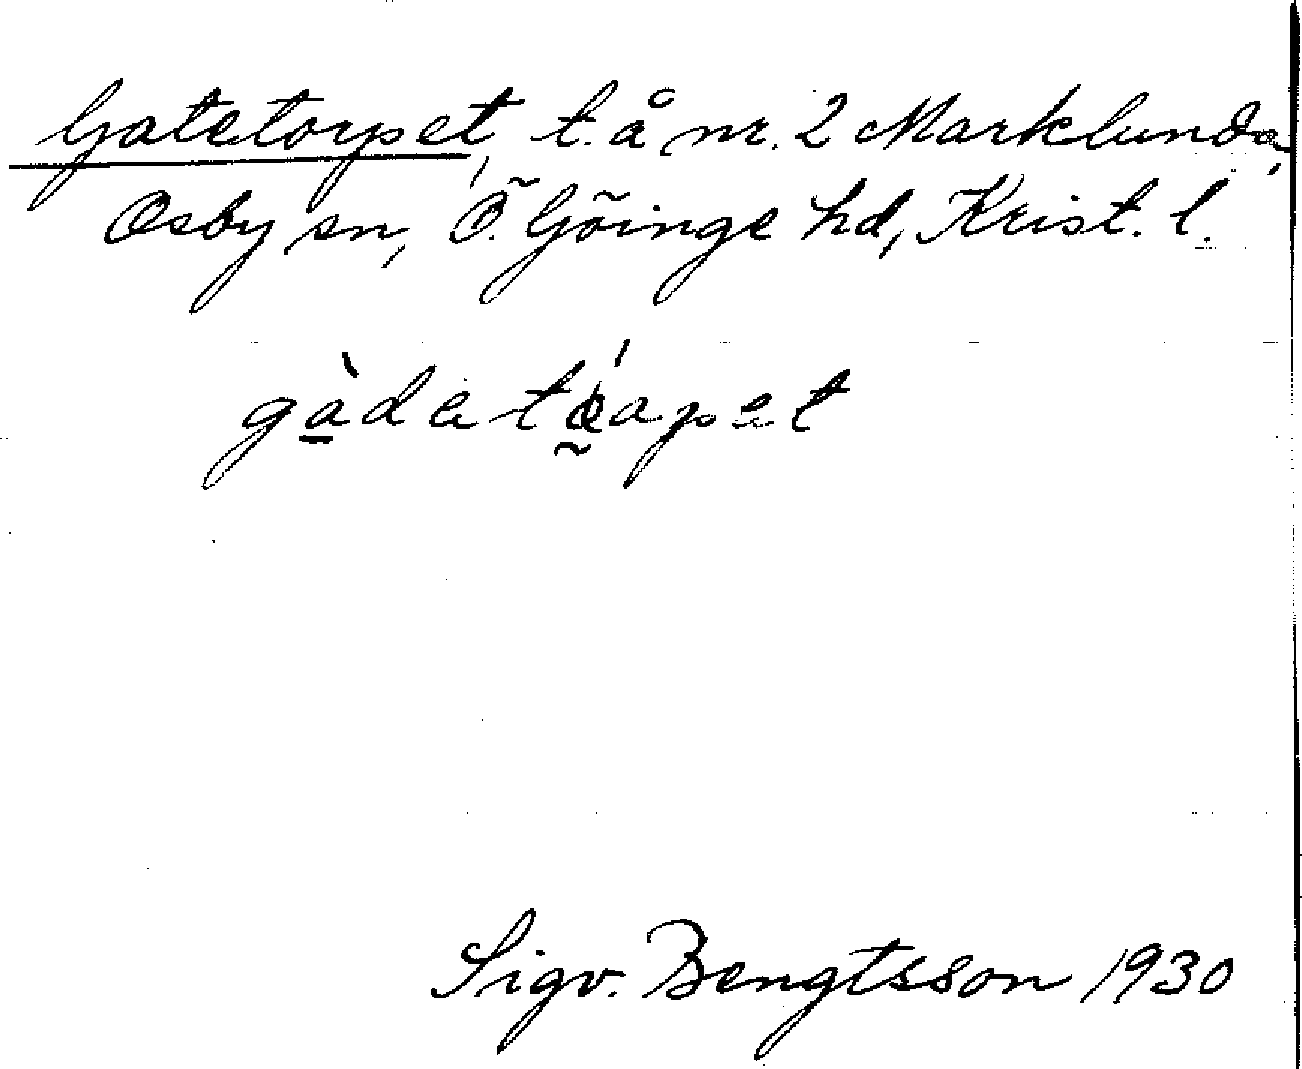 Gatetorpet, t. å nr. 2 Marklunda,
Osby sn, Ö. Göinge hd, Krist. l.
gàdetǿapet
Sigv. Bengtsson 1930